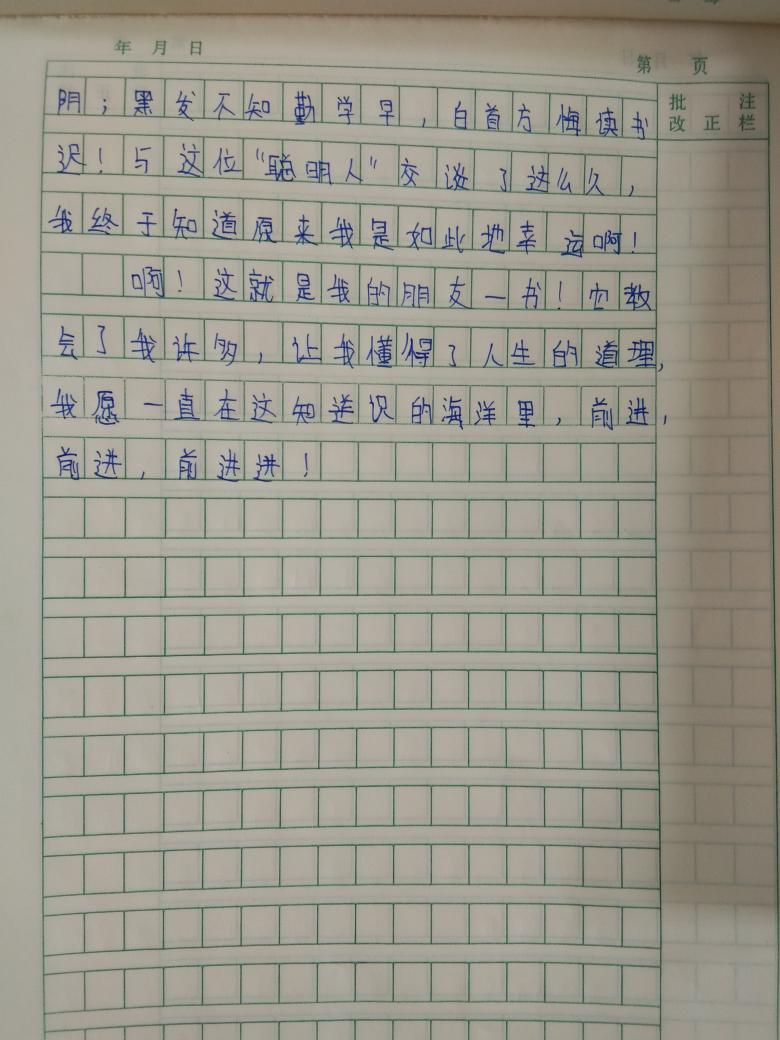 年 月 日
第 页
批 注
改 正 栏
阴；黑发不知勤学早，白首方悔读书
迟！与这位“聪明人”交谈了这么久，
我终于知道原来我是如此地幸运啊！
啊！这就是我的朋友一书！它教
会了我许多，让我懂得了人生的道理，
我愿一直在这知迷识的海洋里，前进，
前进，前进进！